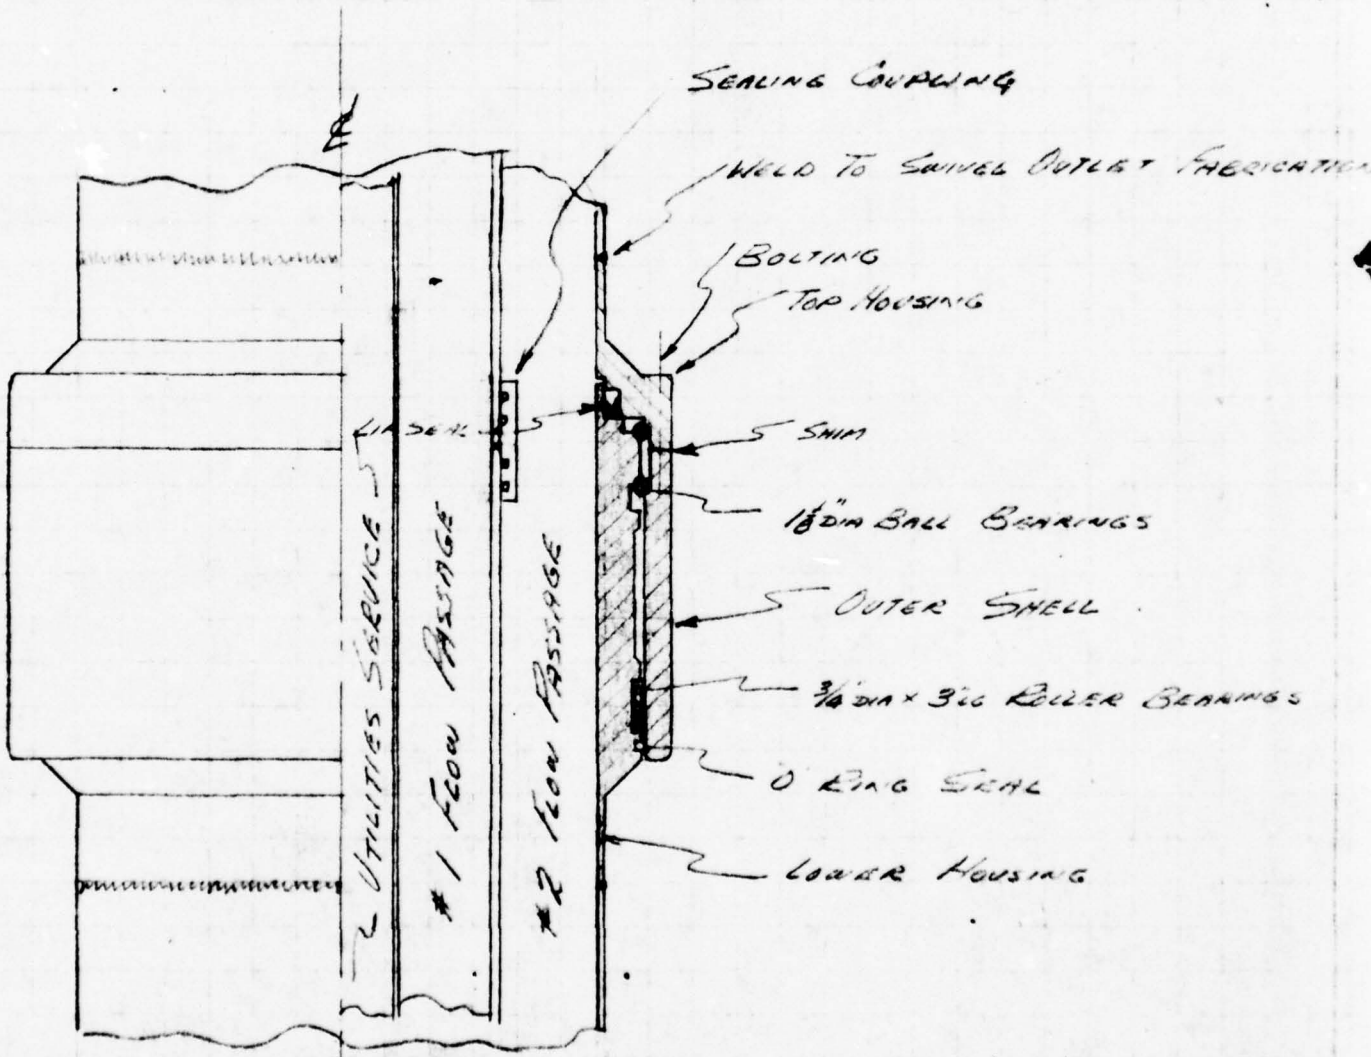 ℄
SEALING COUPLING
WELD TO SWIVEL OUTLET FABRICATION
BOLTING
TOP HOUSING
LIP SEAL
SHIM
1⅛" DIA BALL BEARINGS
OUTER SHELL
¾" DIA × 3" LG ROLLER BEARINGS
O RING SEAL
LOWER HOUSING
UTILITIES SERVICE
#1 FLOW PASSAGE
#2 FLOW PASSAGE